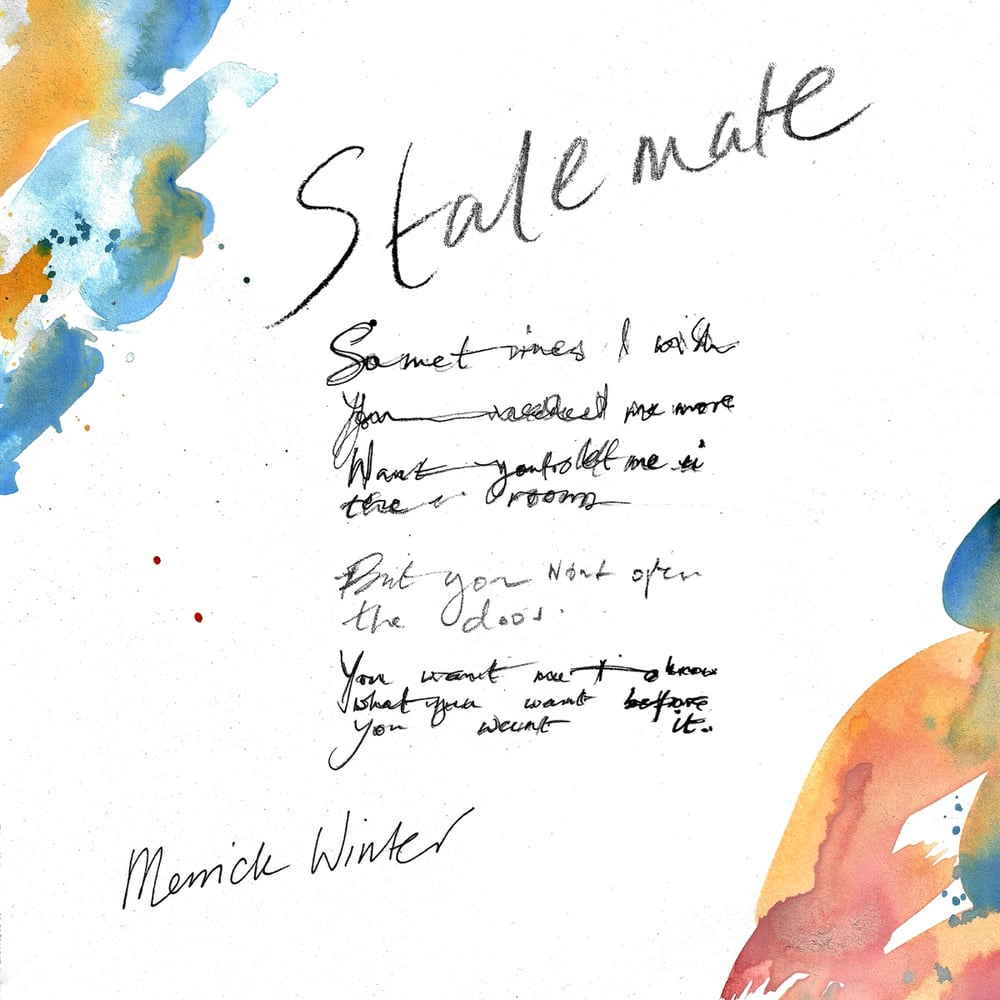 Stalemate
Sometimes I wish
You needed me more
Want you to left me in
the room
But you wont open
the door.
You want me to know
what you want before
you want it..
Merrick Winter